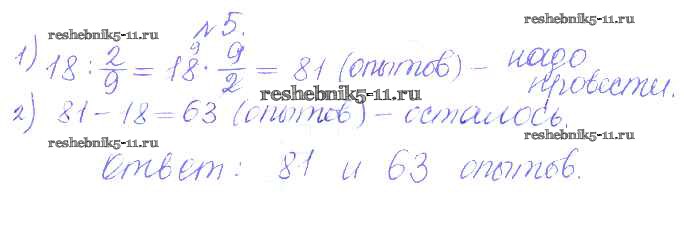 №5.
reshebnik5-11.ru reshebnik5-11.ru
1) 18 : 2/9 = 18 · 9/2 = 81 (опытов) – надо
9
провести.
reshebnik5-11.ru
2) 81 – 18 = 63 (опытов) – осталось.
reshebnik5-11.ru reshebnik5-11.ru
Ответ: 81 и 63 опытов.